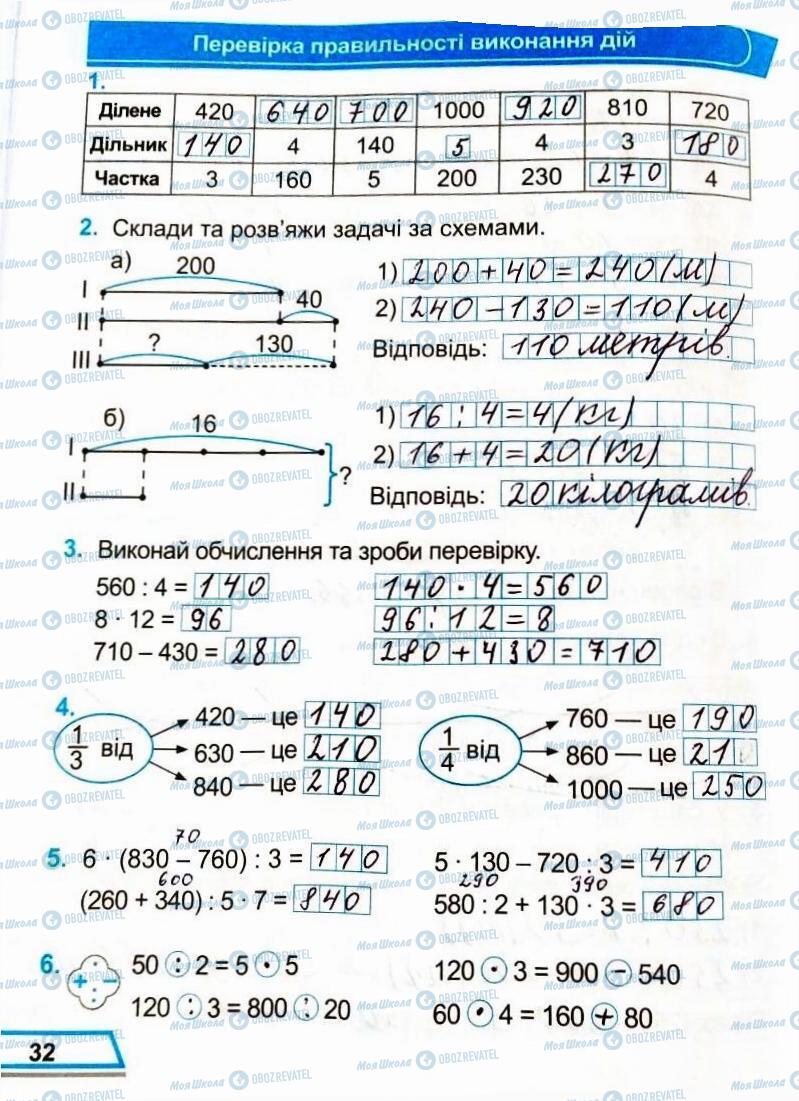 Перевірка правильності виконання дій
1.
Ділене 420 640 700 1000 920 810 720
Дільник 140 4 140 5 4 3 180
Частка 3 160 5 200 230 270 4
2. Склади та розв'яжи задачі за схемами.
а) 200
I
40
II
? 130
III
1) 200 + 40 = 240 (м)
2) 240 – 130 = 110 (м)
Відповідь: 110 метрів.
б) 16
I
II
?
1) 16 : 4 = 4 (кг)
2) 16 + 4 = 20 (кг)
Відповідь: 20 кілограмів.
3. Виконай обчислення та зроби перевірку.
560 : 4 = 140 140 · 4 = 560
8 · 12 = 96 96 : 12 = 8
710 – 430 = 280 280 + 430 = 710
4.
1/3 від
420 — це 140
630 — це 210
840 — це 280
1/4 від
760 — це 190
860 — це 210
1000 — це 250
70
5. 6 · (830 – 760) : 3 = 140
600
(260 + 340) : 5 · 7 = 840
5 · 130 – 720 : 3 = 410
290 390
580 : 2 + 130 · 3 = 680
6. · + – :
50 : 2 = 5 · 5
120 : 3 = 800 : 20
120 · 3 = 900 – 540
60 · 4 = 160 + 80
32
МояШкола OBOZREVATEL